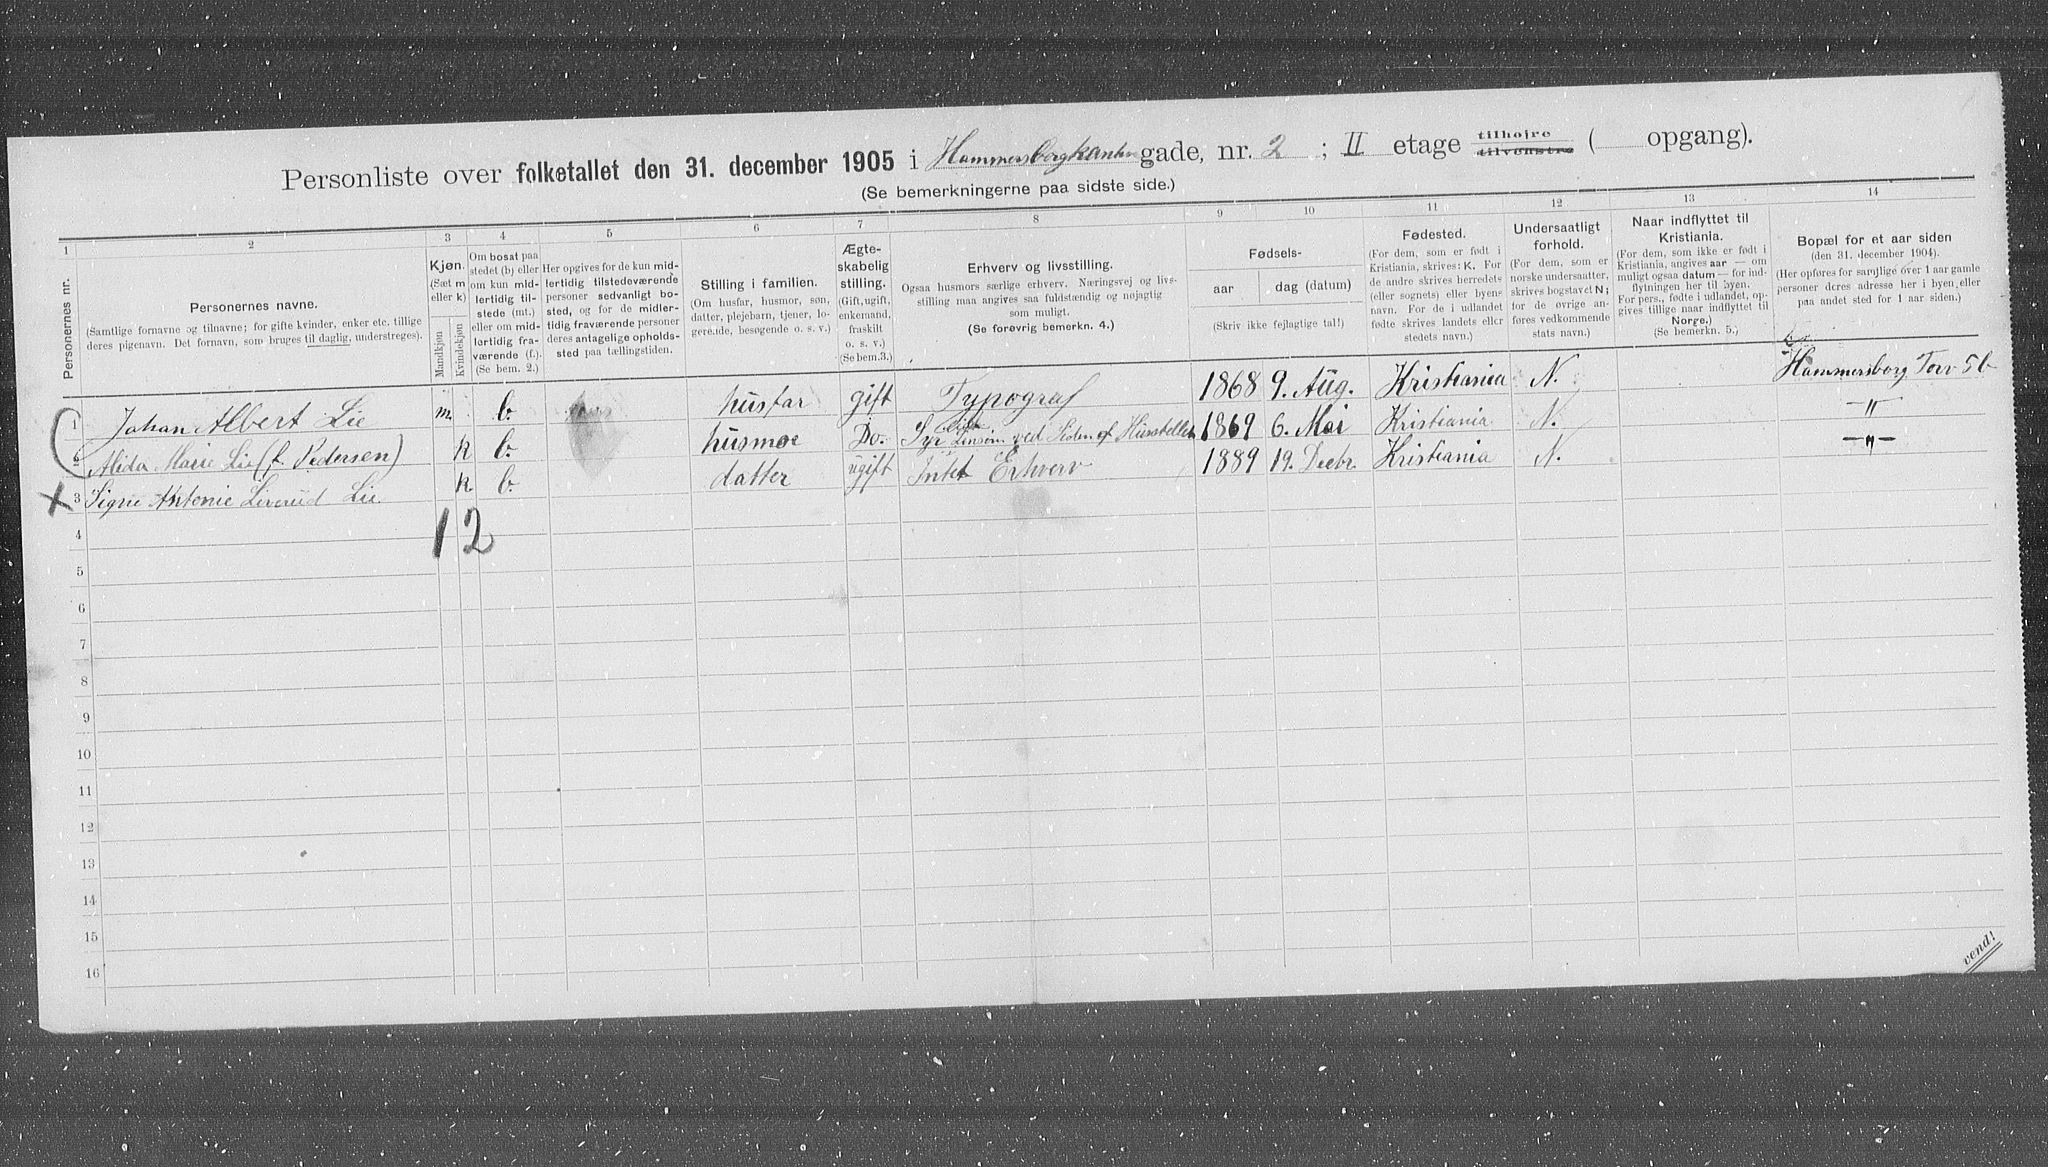 Personliste over folketallet den 31. december 1905 i Hammersborgkanten gade, nr. 2 ; II etage tilhøjre tilvenstre ( opgang).
(Se bemerkningerne paa sidste side.)
1 2 3 4 5 6 7 8 9 10 11 12 13 14
Personernes nr.
Personernes navne.
(Samtlige fornavne og tilnavne; for gifte kvinder, enker etc. tillige
deres pigenavn. Det fornavn, som bruges til daglig, understreges).
Kjøn.
(Sæt m
eller k)
Mandkjøn
Kvindekjøn
Om bosat paa
stedet (b) eller
om kun mid-
lertidig til-
stede (mt.)
eller om mid-
lertidig fra-
værende (f.).
(Se bem. 2.)
Her opgives for de kun mid-
lertidig tilstedeværende
personer sedvanligt bo-
sted, og for de midler-
tidig fraværende personer
deres antagelige opholds-
sted paa tællingstiden.
Stilling i familien.
(Om husfar, husmor, søn,
datter, plejebarn, tjener, lo-
gerende, besøgende o. s. v.)
Ægte-
skabelig
stilling.
(Gift, ugift,
enkemand,
fraskilt
o. s. v.)
(Se bem.3.)
Erhverv og livsstilling.
Ogsaa husmors særlige erhverv. Næringsvej og livs-
stilling maa angives saa fuldstændig og nøjagtig
som muligt.
(Se forøvrig bemerkn. 4.)
Fødsels-
aar dag (datum)
(Skriv ikke fejlagtige tal!)
Fødested.
(For dem, som er født i
Kristiania, skrives: K. For
de andre skrives herredets
(eller sognets) eller byens
navn. For de i udlandet
fødte skrives landets eller
stedets navn.)
Undersaatligt
forhold.
(For dem, som er
norske undersaatter,
skrives bogstavet N;
for de øvrige an-
føres vedkommende
stats navn.)
Naar indflyttet til
Kristiania.
(For dem, som ikke er født i
Kristiania, angives aar — om
muligt ogsaa datum — for ind-
flytningen her til byen.
For pers., fødte i udlandet, op-
gives tillige naar indflyttet til
Norge.)
(Se bemerkn. 5.)
Bopæl for et aar siden
(den 31. december 1904).
(Her opføres for samtlige over 1 aar gamle
personer deres adresse her i byen eller
paa andet sted for 1 aar siden.)
1 Johan Albert Lie m. b. husfar gift Typograf 1868 9. Aug. Kristiania N. Hammersborg Torv 5b
2 Alida Marie Lie (f. Pedersen) k b. husmor Do. ved Siden af Husstellet 1869 6. Mai Kristiania N. —"—
3 Signe Antonie Liverud Lie k b. datter ugift Intet Erhverv 1889 19. Decbr. Kristiania N. —"—
1 2
4
5
6
7
8
9
10
11
12
13
14
15
16
vend!